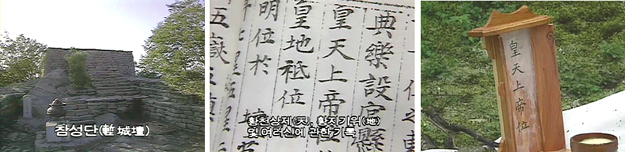 참성단(塹城壇)
典樂設宮懸
皇天上帝位
皇地祇位
明位於
五嶽
황천상제(天), 황지기위(地)
및 여러신에 관한 기록
皇天上帝位